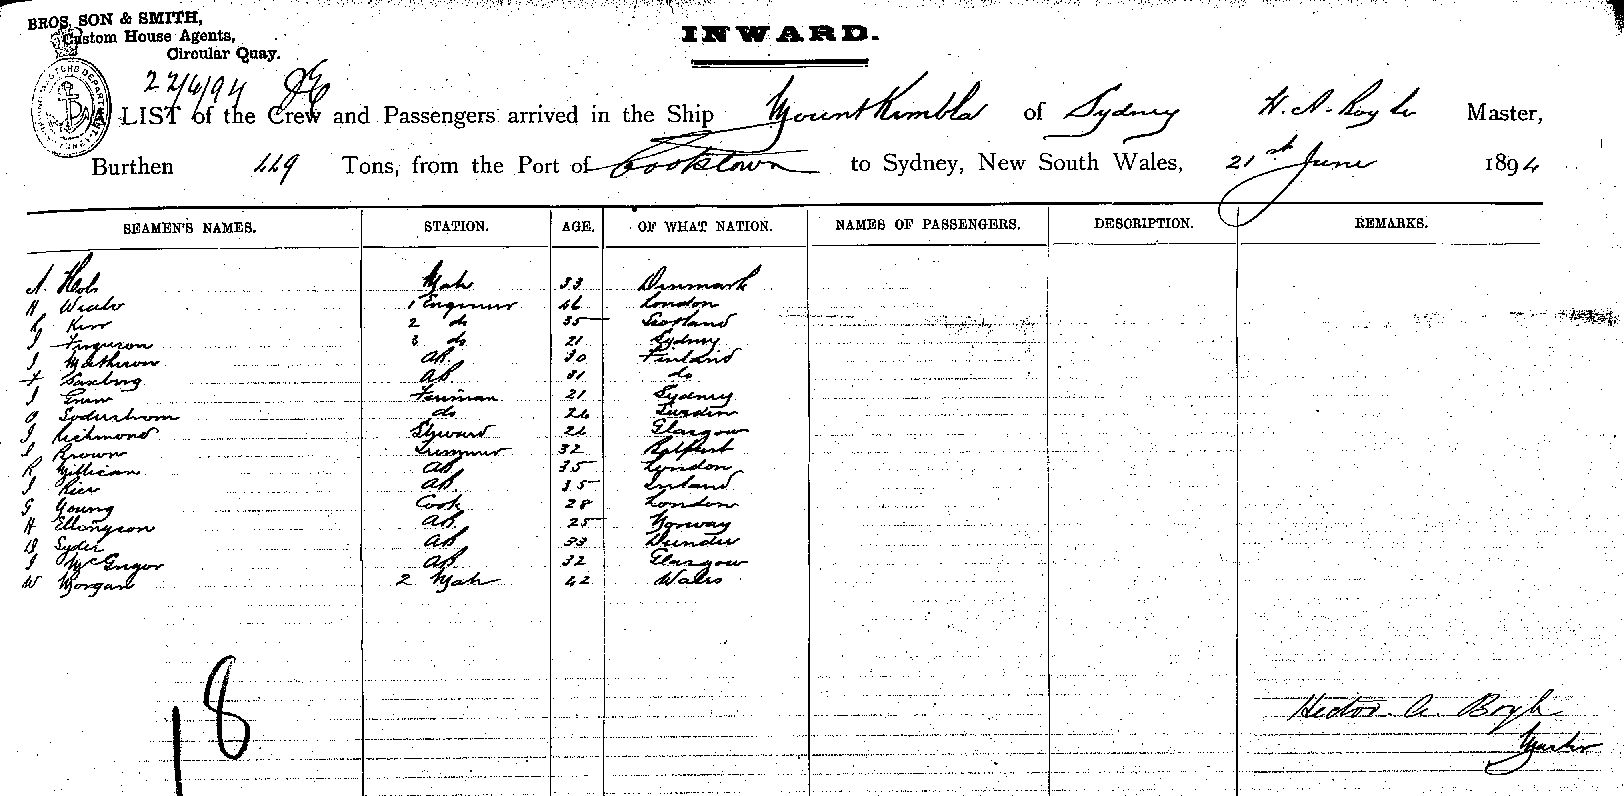 BROS, SON & SMITH,
Custom House Agents,
Circular Quay.
INWARD.
22/6/94
A LIST of the Crew and Passengers arrived in the Ship Mount Kembla of Sydney H. A. Boyle Master,
Burthen 449 Tons, from the Port of Cooktown to Sydney, New South Wales, 21st June 1894
SEAMEN'S NAMES. STATION. AGE. OF WHAT NATION. NAMES OF PASSENGERS. DESCRIPTION. REMARKS.
A. Mate 33 Denmark
H 1 Engineer 46 London
Kerr 2 do 35 Scotland
J Ferguson 3 do 21 Sydney
J Mathieson AB. 30 Finland
F Saxberg AB 31 do
J Fireman 21 Sydney
O Soderstrom do 26 Sweden
J Richmond Steward 26 Glasgow
J Brown Trimmer 32 Belfast
R Millican AB 35 London
J AB. 35 Ireland
G Young Cook 28 London
H Ellingson AB. 25 Norway
Syder AB 33 Dundee
J McGregor AB. 32 Glasgow
W Morgan 2 Mate 42 Wales
18
Hector A. Boyle
Master